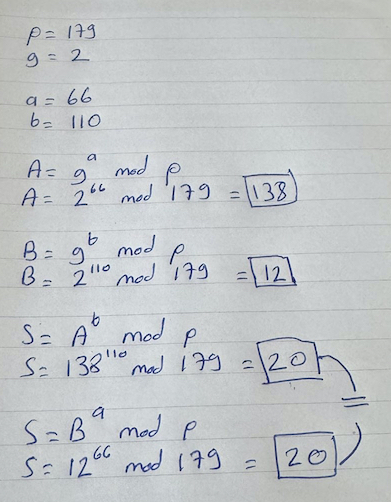 p = 179
g = 2
a = 66
b = 110
A = g^a mod p
A = 2^66 mod 179 = 138
B = g^b mod p
B = 2^110 mod 179 = 12
S = A^b mod p
S = 138^110 mod 179 = 20
=
S = B^a mod p
S = 12^66 mod 179 = 20